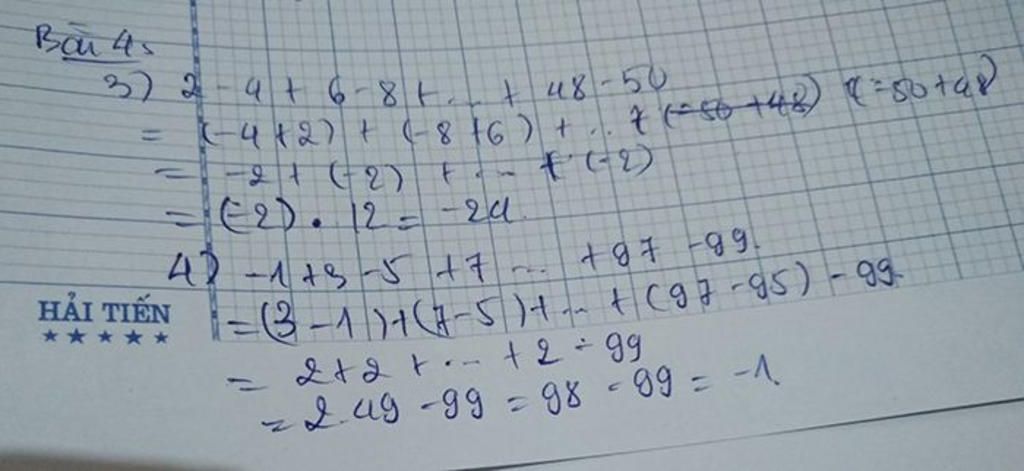 Bài 4:
3) 2 - 4 + 6 - 8 + ... + 48 - 50
= (-4 + 2) + (-8 + 6) + ... + (-50 + 48) (-50 + 48)
= -2 + (-2) + ... + (-2)
= (-2) . 12 = -24.
4) -1 + 3 - 5 + 7 ... + 97 - 99.
= (3 - 1) + (7 - 5) + ... + (97 - 95) - 99.
= 2 + 2 + ... + 2 - 99
= 2. 49 - 99 = 98 - 99 = -1.
HẢI TIẾN